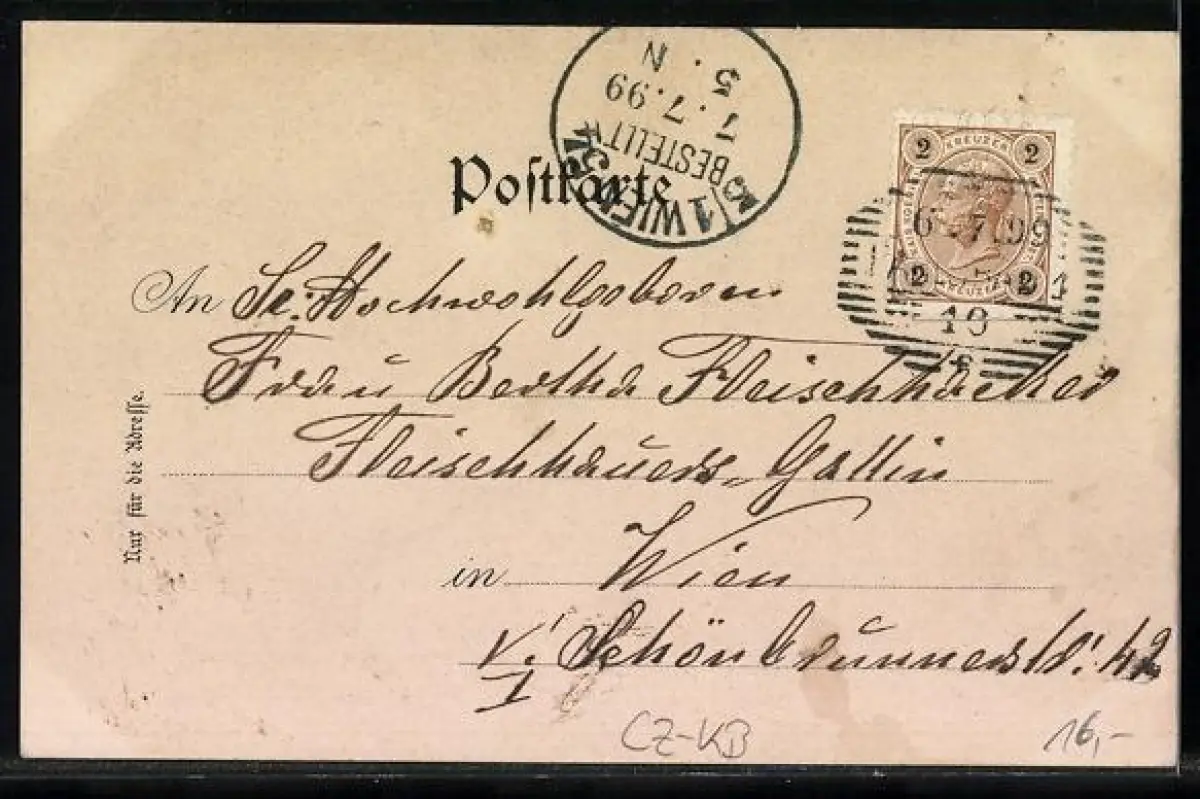 Postkarte
5/1 WIEN 5/1
BESTELLT
7. 7. 99
5. N
KREUZER
2 2
6. 7. 99
2 2
KREUZER
10
An Sr. Hochwohlgeboren
Frau Bertha Fleischhacker
Fleischhauers-Gattin
in Wien
V. Schönbrunnerstr. 42
I
Nur für die Adresse.
CZ-KB
16,-